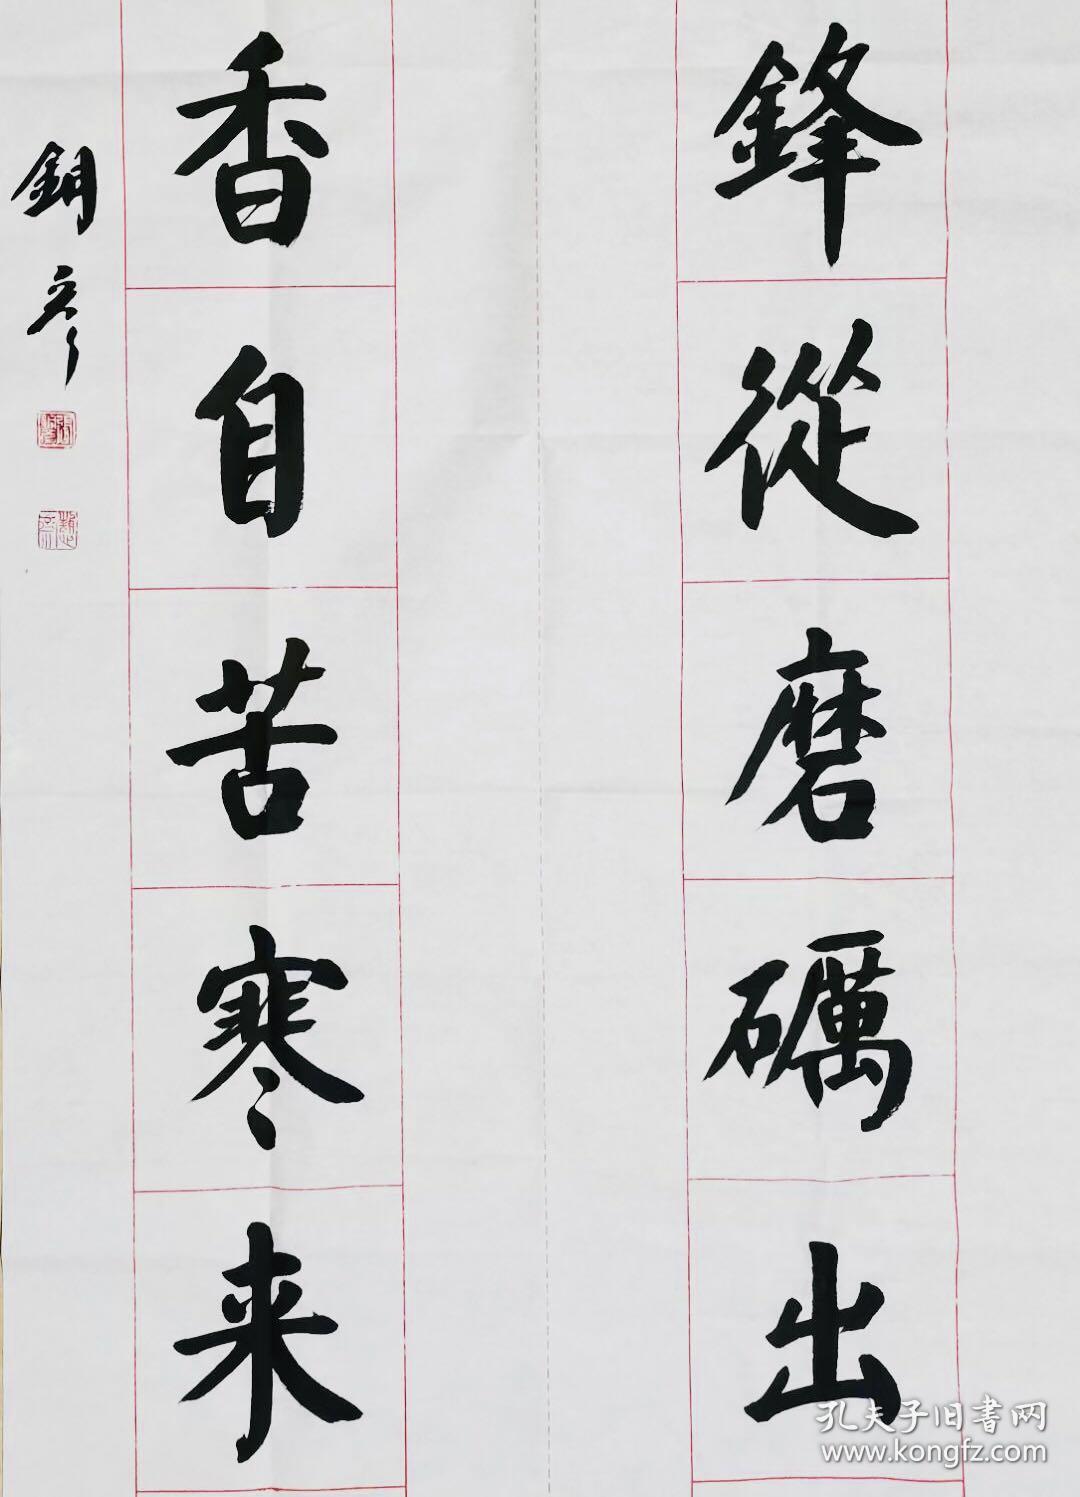 鋒從磨礪出
香自苦寒来
孔夫子旧書网
www.kongfz.com